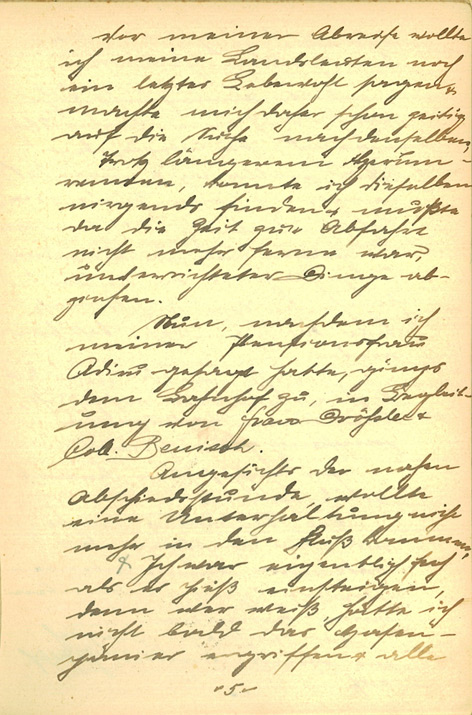 Vor meiner Abreise wollte
ich meine Landsleuten noch
ein letztes Lebewohl sagen &
machte mich daher schon zeitig
auf die Suche nach denselben,
Trotz längerem Herum-
rennen, konnte ich dieselben
nirgends finden & mußte
da die Zeit zur Abfahrt
nicht mehr ferne war,
unverrichteter Dinge ab-
ziehen.
Nun, nachdem ich
meiner Pensionsfrau
Adieu gesagt hatte, gings
dem Bahnhof zu, in Begleit-
ung von Frau &
Col. Benisch.
Angesichts der nahen
Abschiedsstunde, wollte
eine Unterhaltung nicht
mehr in den Fluß kommen,
& Ich war eigentlich froh
als es hieß einsteigen,
denn wer weiß, hätte ich
nicht bald das Hasen-
panier ergriffen & alle
"5"